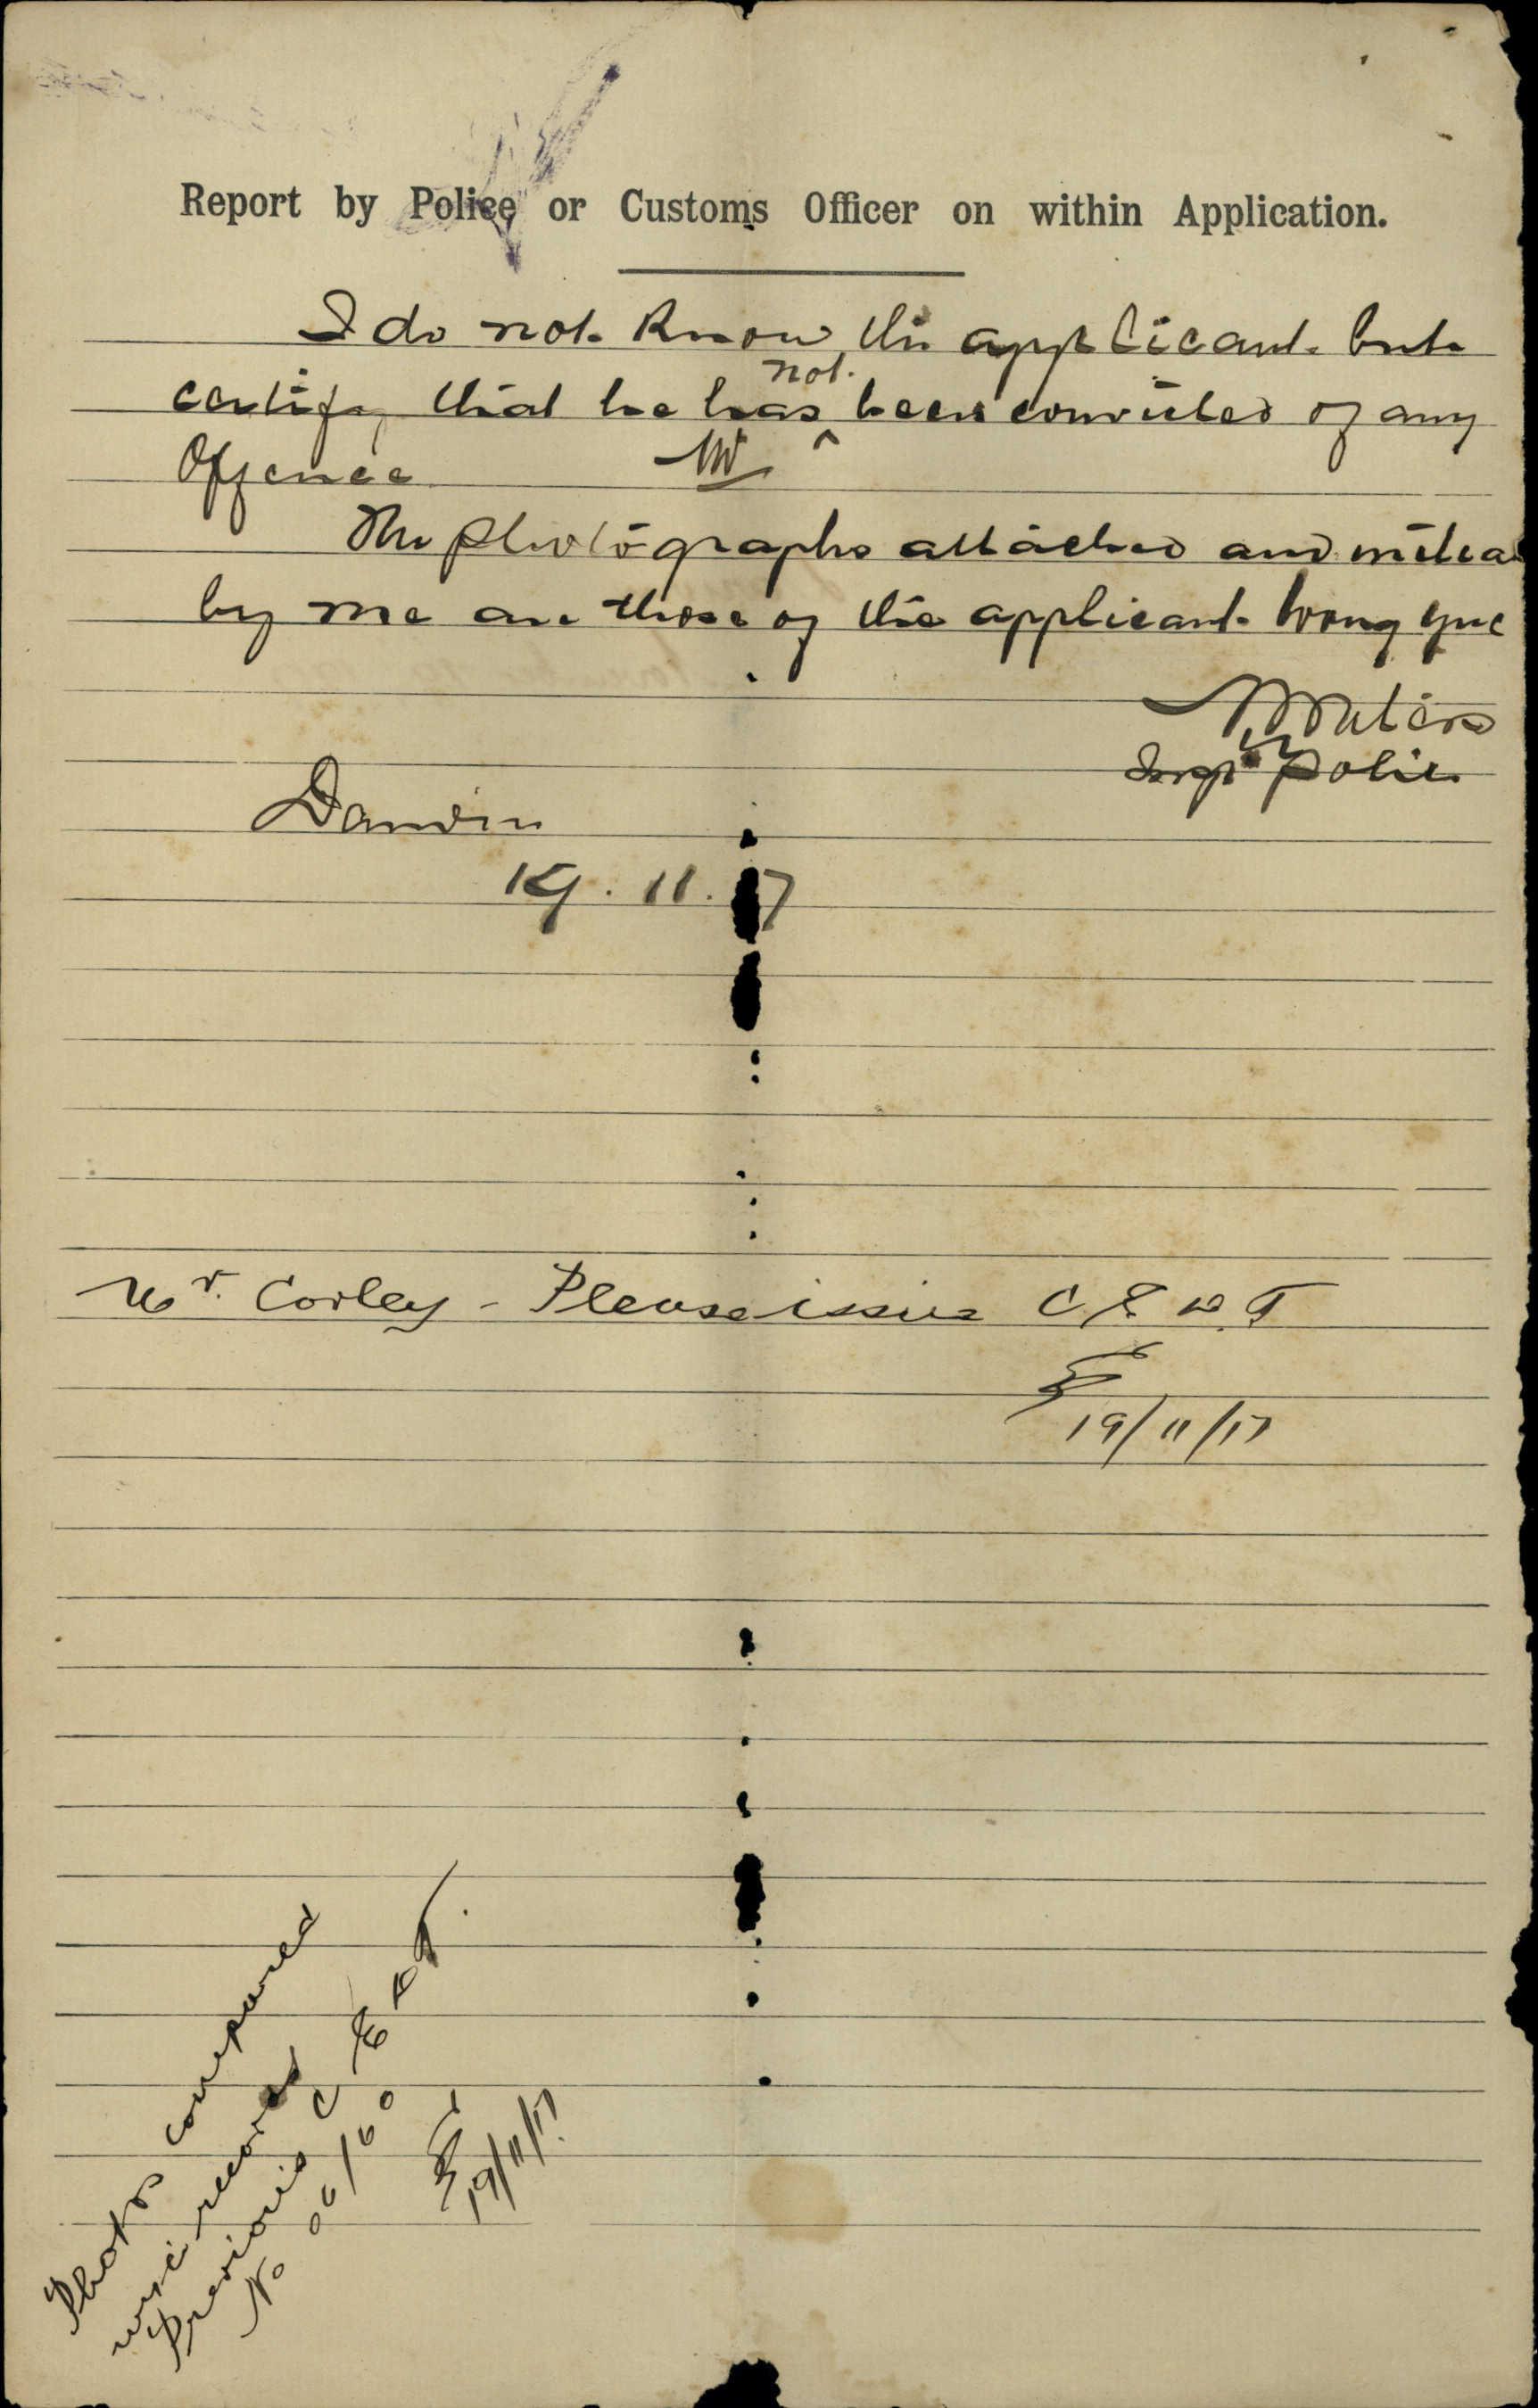 Report by Police or Customs Officer on within Application.
I do not know the applicant but
certify that he has not been convicted of any
Offence NW
The photographs attached and initia
by me are those of the applicant Wong Yue
N Waters
Insp of Police
Darwin
19.11.17
Mr. Corley - Please issue C E D T
19/11/17
Photos compared
with record
previous C E D T.
No 06/60
19/11/17